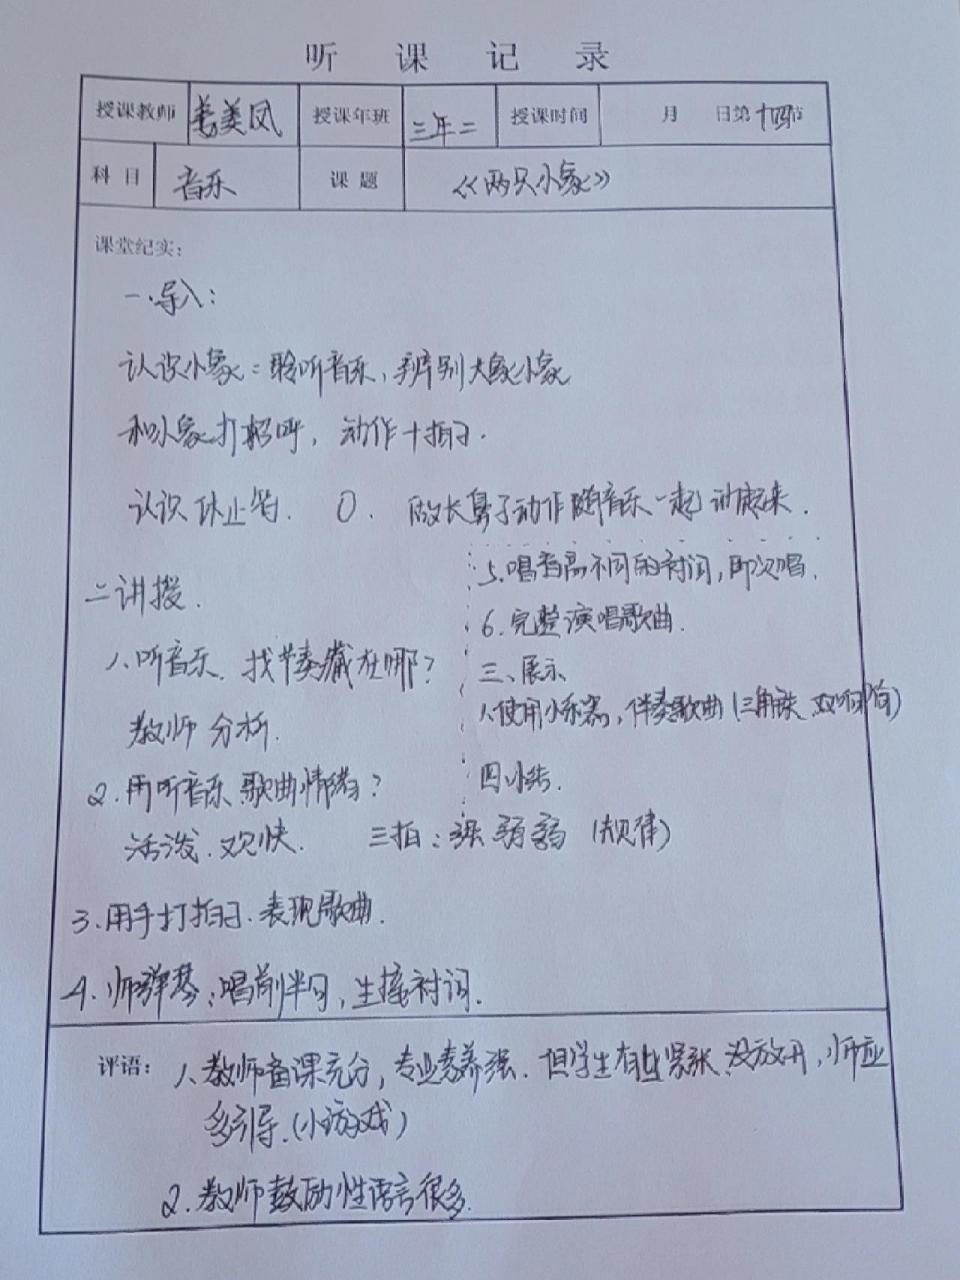 听课记录
授课教师 姜美凤 授课年班 三年二 授课时间 月 日第十四节
科目 音乐 课题 《两只小象》
课堂纪实：
一、导入：
认识小象：聆听音乐，辨别大象小象
和小象打招呼，动作十拍子.
认识休止符. 0. 做长鼻子动作随音乐一起动起来.
二讲授.
1.听音乐.找节奏藏在哪？
教师分析.
2.再听音乐 歌曲情绪？
活泼.欢快. 三拍：强弱弱（规律）
3.用手打拍子.表现歌曲.
4.师弹琴；唱前半句，生接衬词.
5.唱音高不同的衬词，即次唱.
6.完整演唱歌曲.
三、展示
1.使用小乐器，伴奏歌曲（三角铁 双响筒）
四小结.
评语：1.教师备课充分，专业素养强.但学生有些紧张.没放开，师应
多引导.（小游戏）
2.教师鼓励性语言很多.